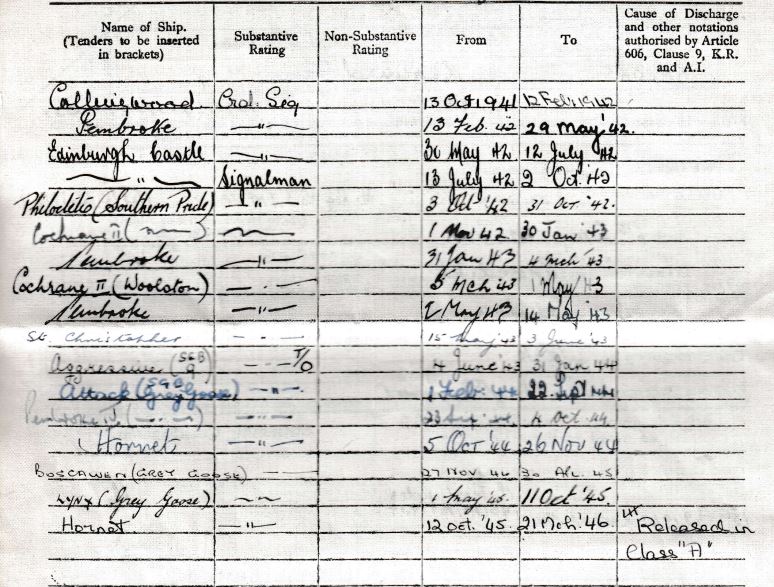 Name of Ship. (Tenders to be inserted in brackets) Substantive Rating Non-Substantive Rating From To Cause of Discharge and other notations authorised by Article 606, Clause 9, K.R. and A.I.
Collingwood Ord. Sig 13 Oct 1941 12 Feb. 1942
Pembroke —"— 13 Feb. 42 29 May '42.
Edinburgh Castle —"— 30 May 42 12 July 42
—"— Signalman 13 July 42 2 Oct. 42
Philoctetes (Southern Pride) —"— 3 Oct '42 31 Oct '42.
Cochrane II ( —"— ) 1 Nov 42 30 Jan '43
Pembroke —"— 31 Jan 43 4 Mch '43
Cochrane II (Woolston) —"— 5 Mch 43 1 May 43
Pembroke —"— 2 May 43 14 May '43
St. Christopher —"— 15 May '43 3 June '43
Aggressive (SGB 9) T/O 4 June '43 31 Jan 44
Attack (SGB Grey Goose) —"— 1 Feb. 44 22 Sept 44
Pembroke —"— 4 Oct. 44
Hornet —"— 5 Oct '44 26 Nov 44
BOSCAWEN (GREY GOOSE) —— 27 NOV 44 30 45
Lynx (Grey Goose) 1 May '45. 11 Oct '45.
Hornet. —"— 12 Oct. '45. 21 Mch '46. Released in
Class "A"